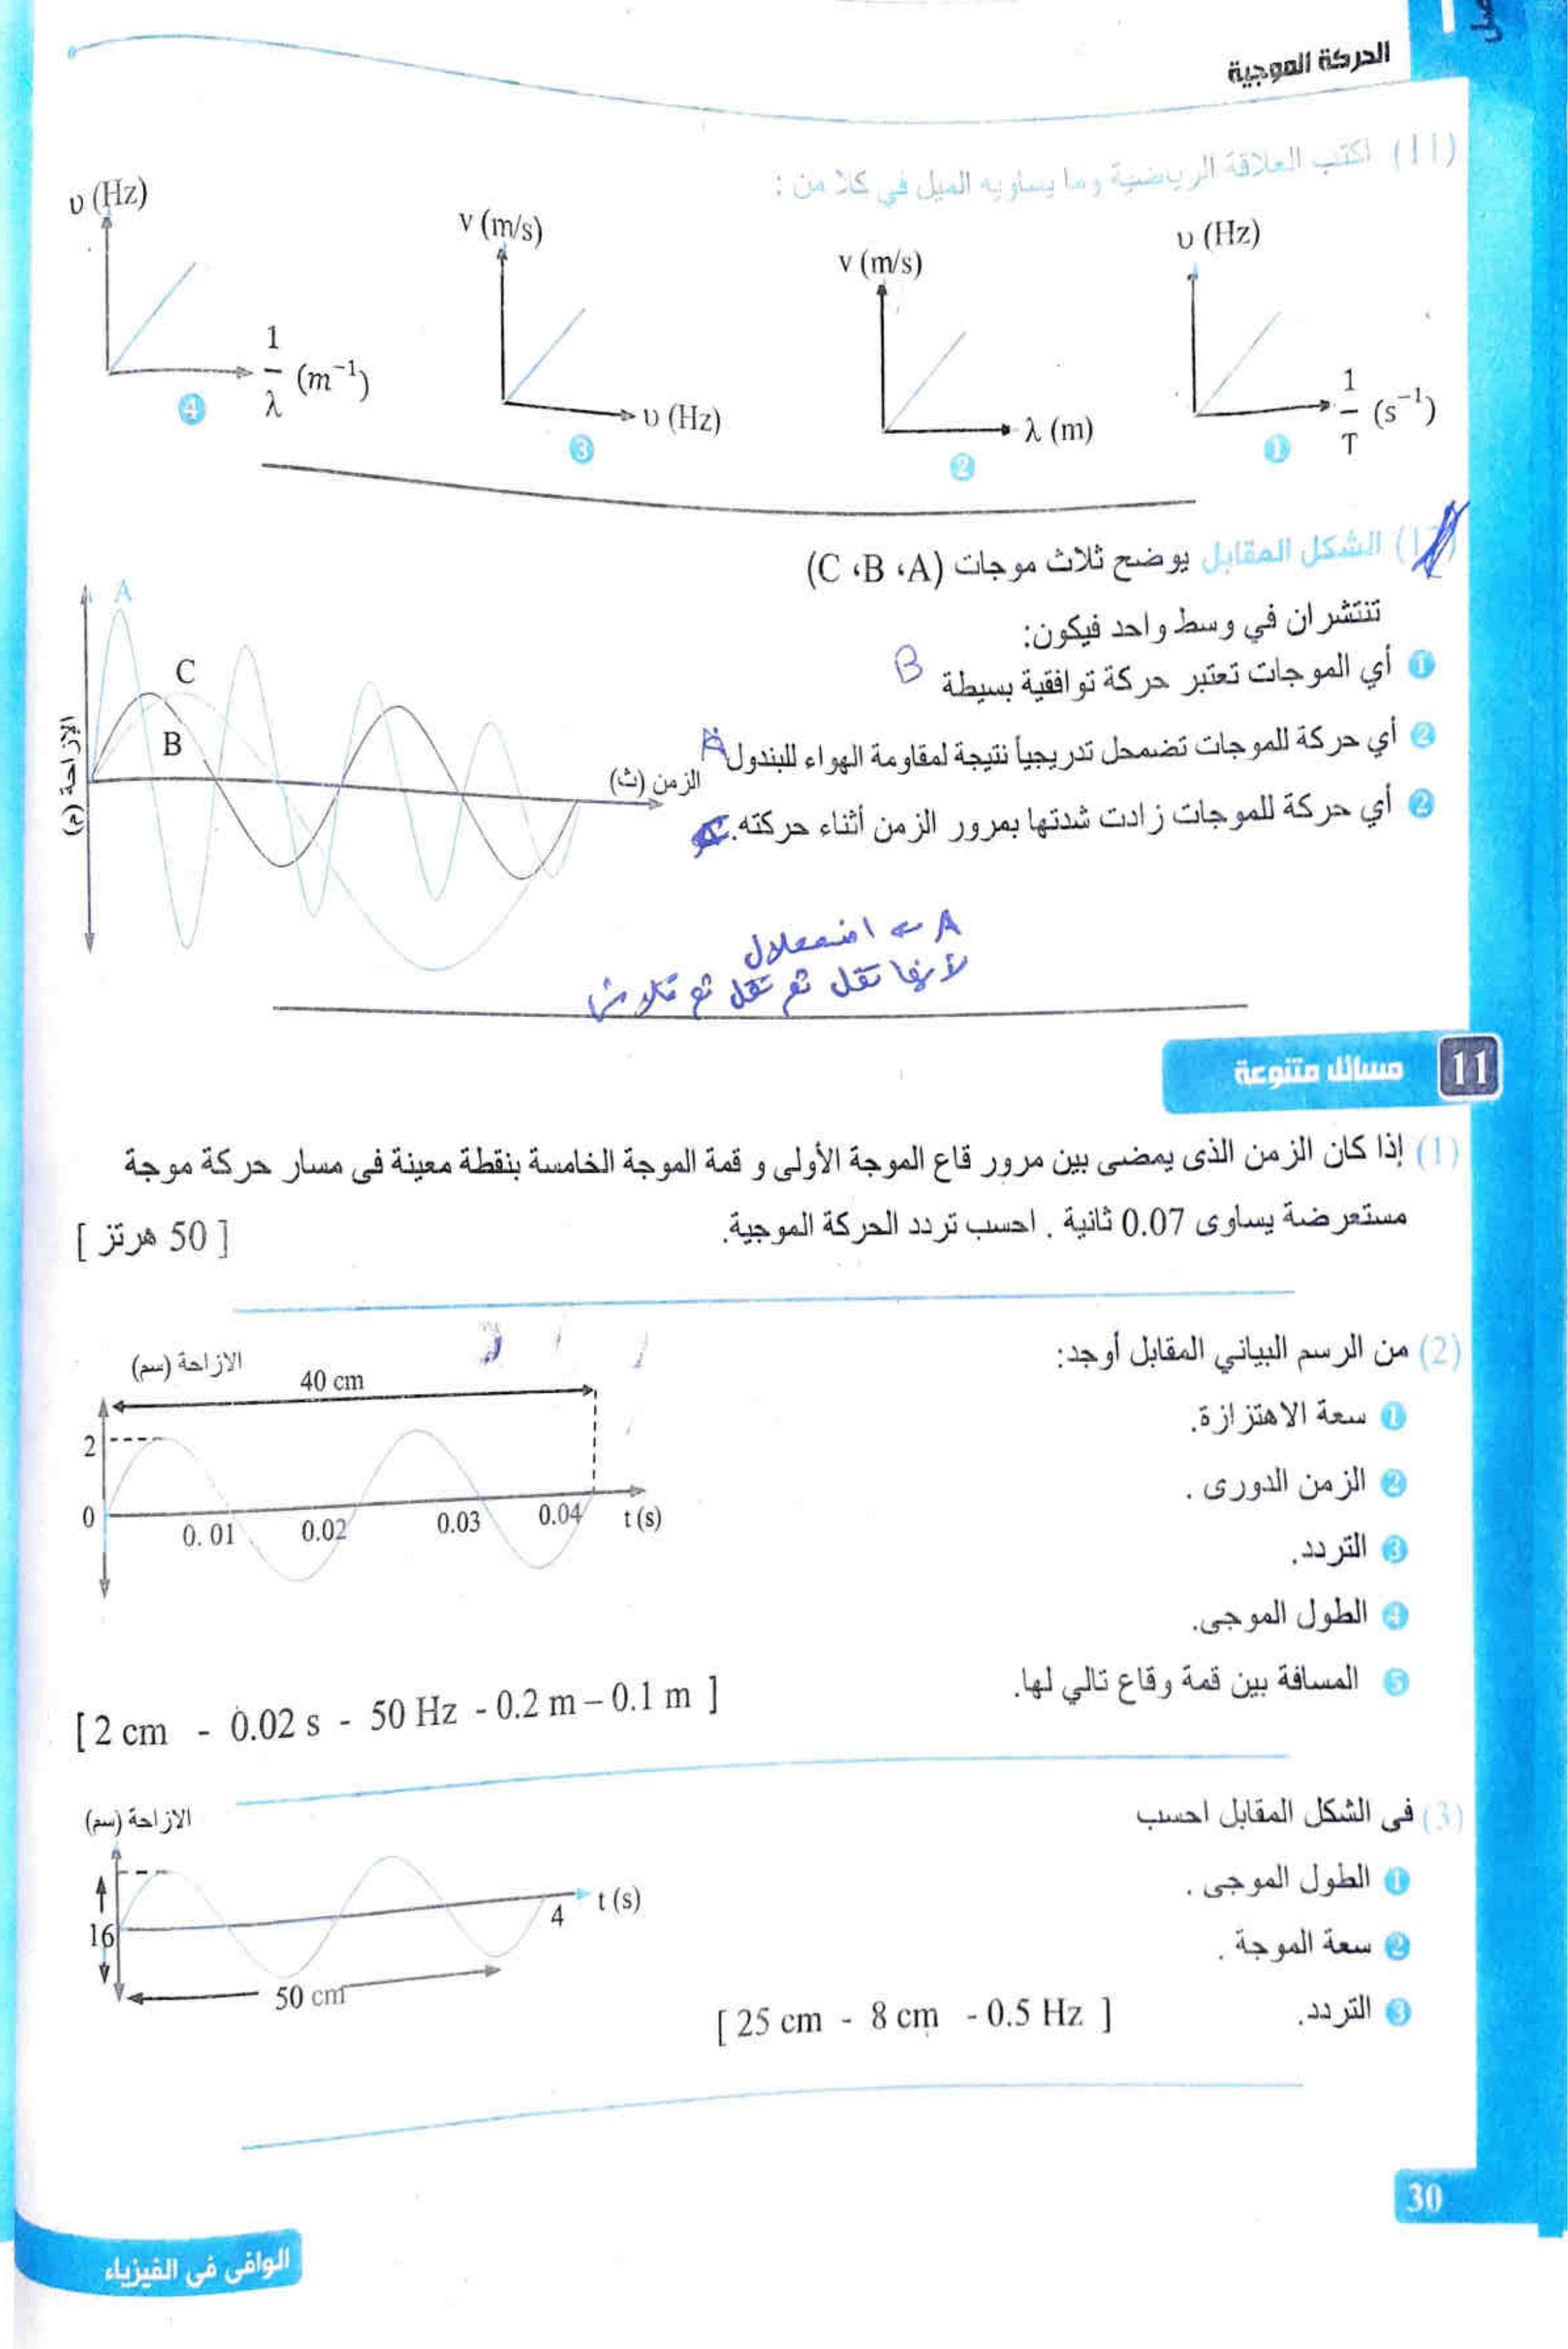 الحركة الموجية
(11) اكتب العلاقة الرياضية وما يساويه الميل في كلا من :
υ (Hz)
1/T (s⁻¹)
1
v (m/s)
λ (m)
2
v (m/s)
υ (Hz)
3
υ (Hz)
1/λ (m⁻¹)
4
الشكل المقابل يوضح ثلاث موجات (C ،B ،A)
تنتشران في وسط واحد فيكون:
1 أي الموجات تعتبر حركة توافقية بسيطة B
2 أي حركة للموجات تضمحل تدريجياً نتيجة لمقاومة الهواء للبندول A
2 أي حركة للموجات زادت شدتها بمرور الزمن أثناء حركته.
الازاحة (م)
A
C
B
الزمن (ث)
A ← اضمحلال
لأنها تقل ثم تقل ثم
11 مسائل متنوعة
(1) إذا كان الزمن الذى يمضى بين مرور قاع الموجة الأولى و قمة الموجة الخامسة بنقطة معينة فى مسار حركة موجة
مستعرضة يساوى 0.07 ثانية . احسب تردد الحركة الموجية.
[ 50 هرتز ]
(2) من الرسم البياني المقابل أوجد:
1 سعة الاهتزازة.
2 الزمن الدورى .
3 التردد.
4 الطول الموجى.
5 المسافة بين قمة وقاع تالي لها.
الازاحة (سم)
40 cm
2
0
0. 01 0.02 0.03 0.04 t (s)
[ 2 cm - 0.02 s - 50 Hz - 0.2 m – 0.1 m ]
(3) فى الشكل المقابل احسب
1 الطول الموجى .
2 سعة الموجة .
3 التردد.
الازاحة (سم)
16
4
t (s)
50 cm
[ 25 cm - 8 cm - 0.5 Hz ]
30
الوافى فى الفيزياء